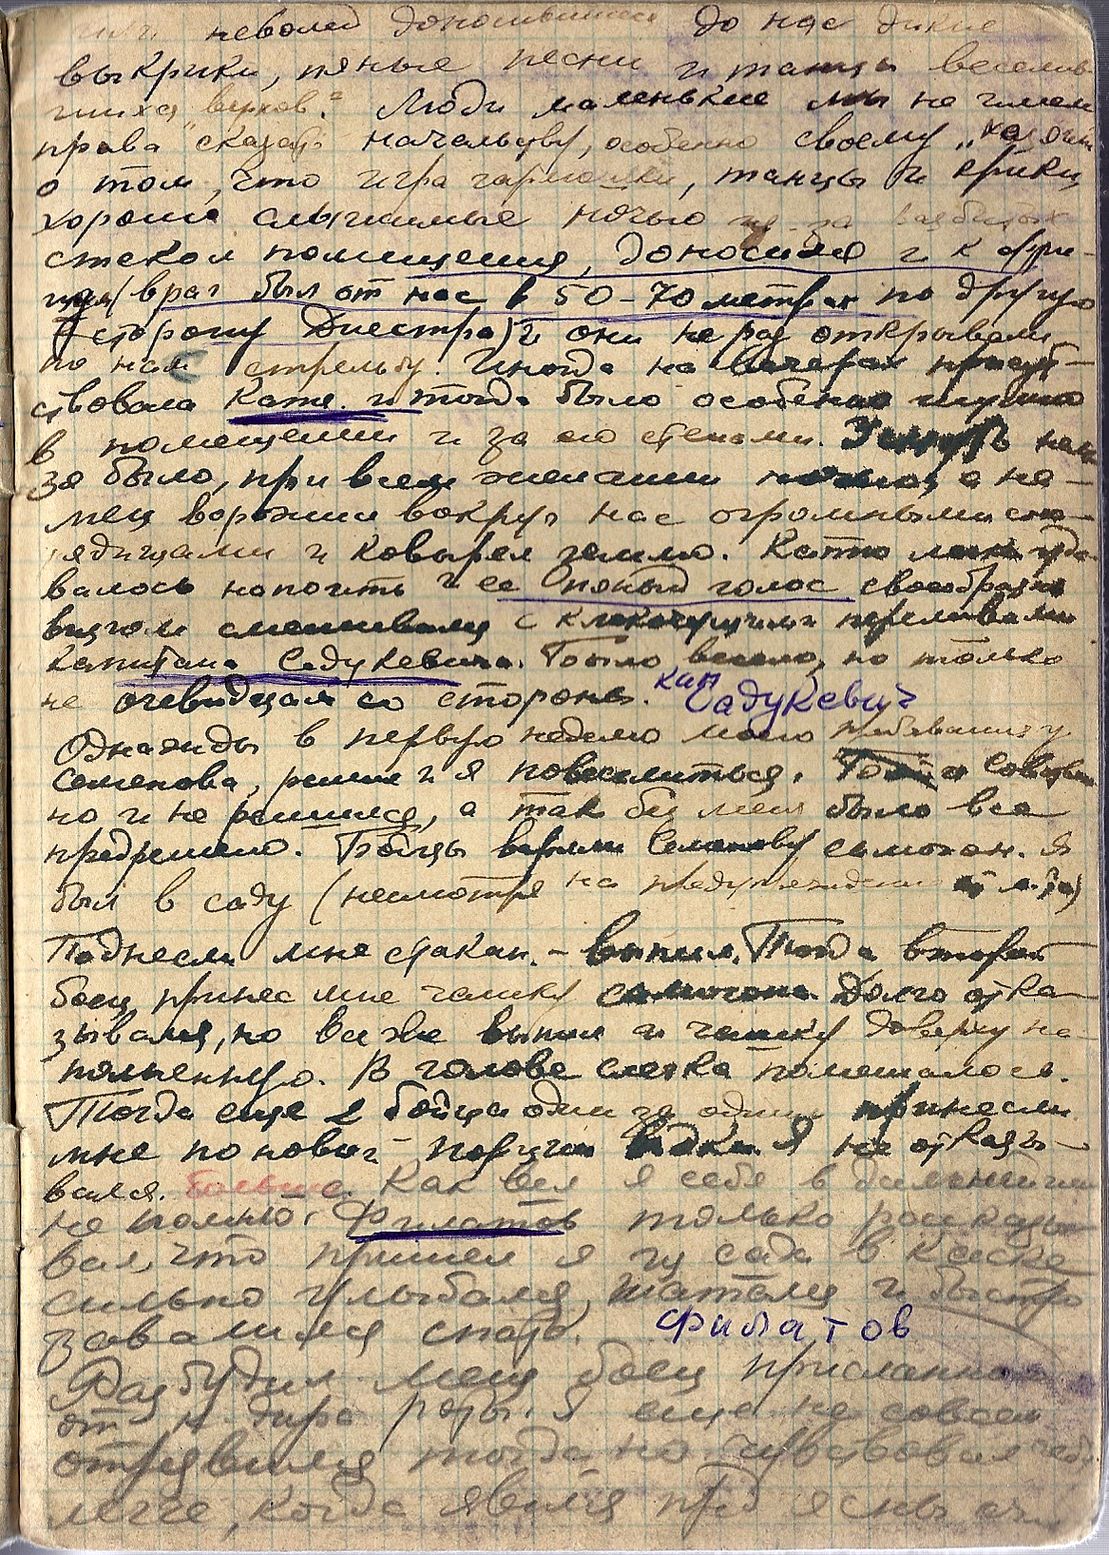 неволей доносившиеся до нас дикие
выкрики, пяные песни и танцы веселив-
шихся „верхов“. Люди маленькие мы не имеем
права сказать начальству, особенно своему,
о том, что игра гармошки, танцы и крики,
хорошо слышимые ночью из-за разбитых
стекол помещения, доносился и к фри-
цам (враг был от нас в 50-70 метрах по другую
сторону Днестра) и они не раз открывали
по нам стрельбу. Иногда на вечерах присут-
ствовала Катя и тогда было особенно шумно
в помещении и за его стенами. Уснуть нель
зя было, при всем желании, а не-
мец ворошил вокруг нас огромными сна-
рядищами и ковырял землю. Катю уда-
валось напоить и ее пяный голос своеобразно
визгом смешивался с клокочущими переливами
капитана Садукевича. Было весело, но только
не очевидцам со стороны. кап Садукевич
Однажды в первую неделю моего пребывания у
Семенова, решил и я повеселиться.
но и не решился, а так без меня было все
предрешено. Бойцы Семенову самогон. Я
был в саду (несмотря на предупреждение
Поднесли мне стакан. - выпил. Тогда второй
боец принес мне чашку самогона. Долго отка-
зывался, но все же выпил и чашку доверху на-
полненную. В голове слегка помешалось.
Тогда еще 2 бойца один за одним принесли
мне по новой порции водки. Я не отказы-
вался. Больше. Как вел я себя в дальнейшем
не помню. Филатов только рассказы-
вал, что пришел я из сада в каске
сильно улыбался, шатался и быстро
завалился спать. Филатов
Разбудил меня боец присланный
от к-дира роты. Я еще не совсем
отрезвился тогда но чувствовал себя
легче, когда явился пред ясны оч